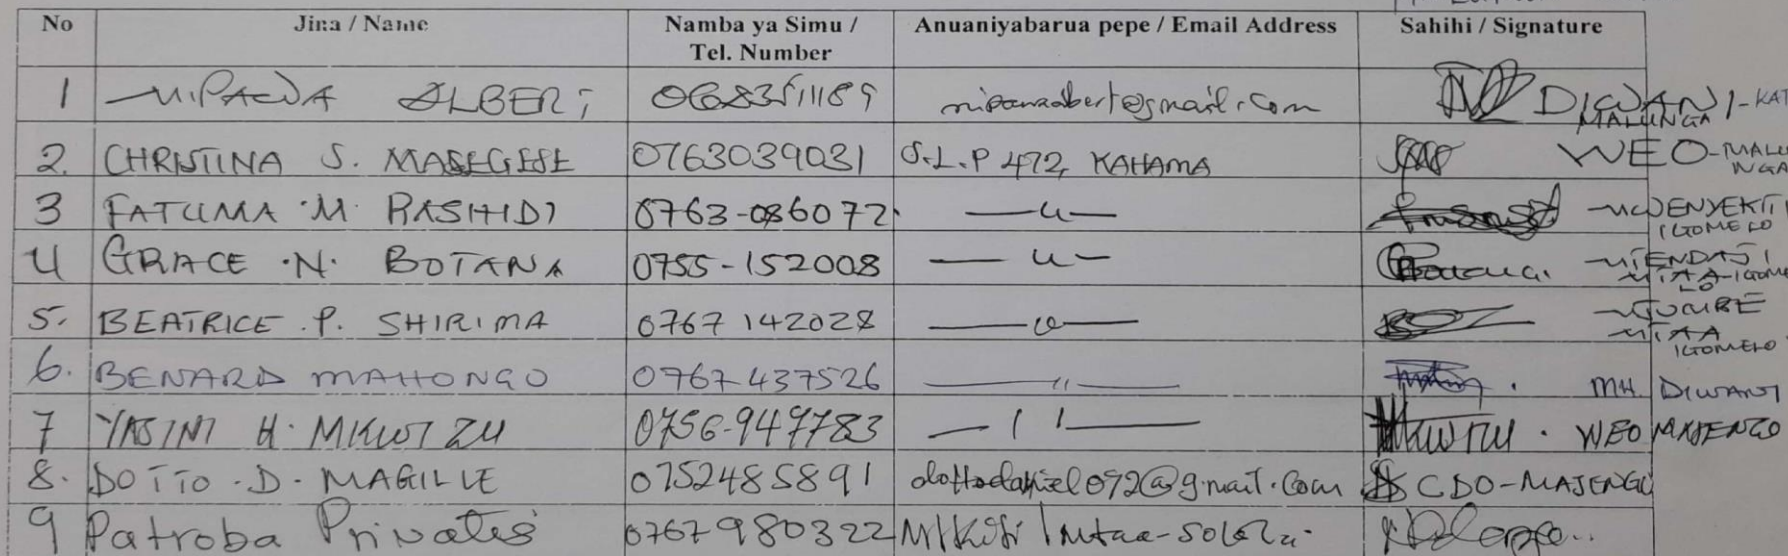 No Jina / Name Namba ya Simu / Tel. Number Anuaniyabarua pepe / Email Address Sahihi / Signature
1 ALBERT 0683511189 DIWANI-KAT MALUNGA
2. CHRISTINA S. MASEGESE 0763039031 S.L.P 472, KAHAMA WEO-MALU NGA
3 FATUMA M. RASHIDI 0763-086072 —u— MWENYEKITI IGOMELO
4 GRACE .N. BOTANA 0755-152008 —u— MTENDAJI MTAA-IGOME LO
5. BEATRICE .P. SHIRIMA 0767 142028 —u— MJUMBE MTAA IGOMELO
6. BENARD MAHONGO 0767-437526 —"— MH. DIWANI
7 YASINI H. MKWIZU 0756-947783 —11— WEO MAJENGO
8. DOTTO .D. MAGILLE 0752485891 dottodaniel092@gmail.com CDO-MAJENGO
9 Patroba Privatus 0767980322